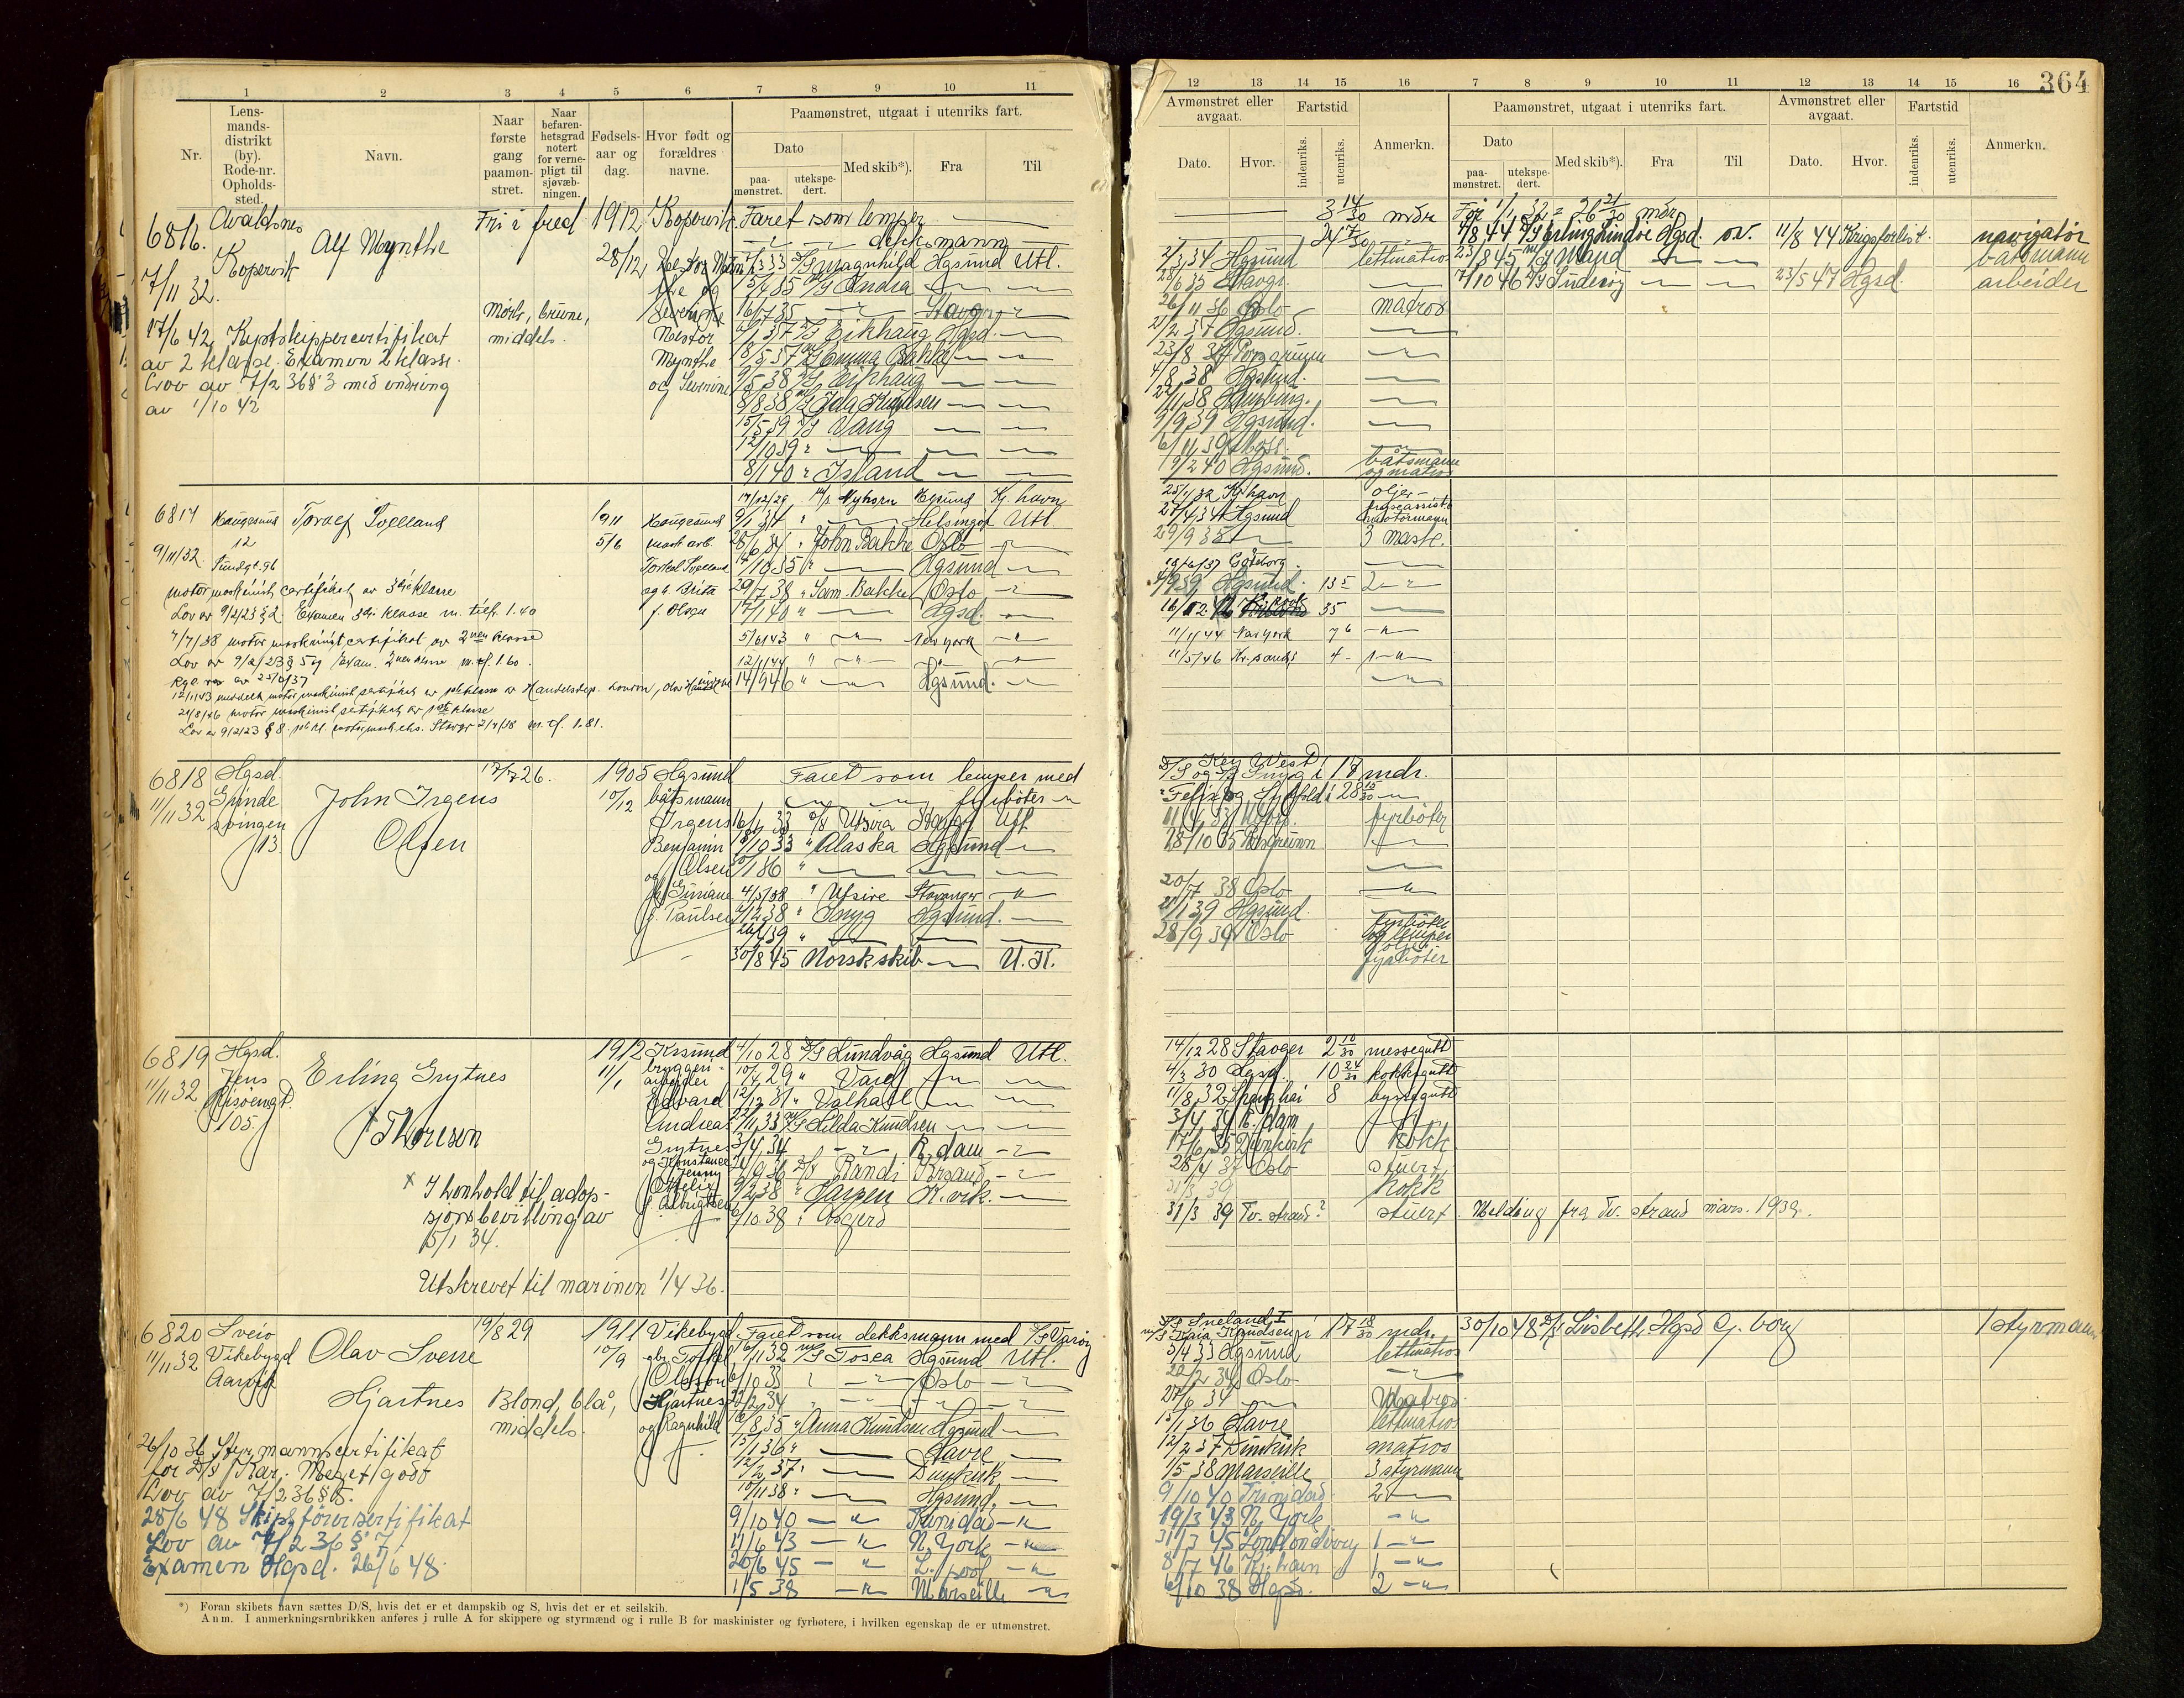 1 2 3 4 5 6 7 8 9 10 11
Nr.
Lens-
mands-
distrikt
(by).
Rode-nr.
Opholds-
sted.
Navn.
Naar
første
gang
paamøn-
stret.
Naar
befaren-
hetsgrad
notert
for verne-
pligt til
sjøvæb-
ningen.
Fødsels-
aar og
dag.
Hvor født og
forældres
navne.
Paamønstret, utgaat i utenriks fart.
Dato
paa-
mønstret.
utekspe-
dert.
Med skib*).
Fra
Til
6816. Avaldsnes Alf Mynthe Fri i fred 1912 Kopervik Faret som lemper
7/11 32. Kopervik 28/12 dekksmann
D/S Magnhild Hgsund Utl.
Mørk, brune,
middels.
Nestor
Mynthe
og Severine
17/6 42. Kystskippercertifikat
av 2 klasse. Examen 2 klasse.
Lov av 7/2 36 § 3 med endring
av 1/10 42
D/S Andrea
16/7 35 Stavgr
D/S Eikhaug Hgsd.
M/S Emma Bakke
9/5 38 D/S Eikhaug
8/8 38 M/S Ida Knudsen
15/5 39 D/S Vang
12/10 39
8/1 40 Island
6817 Haugesund Toralf Sveland 1911 Haugesund 17/12/29 M/S Nyhorn Hgsund Kj.havn
9/11/32 12 5/6 mask arb. 9/1 34 Helsingør Utl.
Sundgt. 96 Torkel Sveland 28/6 34 John Bakke Oslo
og h. Brita 10 35 Hgsund
f. Olsen 29/7 38 Sam. Bakke Oslo
motormaskinist certifikat av 3die klasse
Lov av 9/2/23 § 2. Examen 3die klasse m. tilfr. 1.40
17/1 40 Hgsd.
7/7/38 motor maskinist certifikat av 2nen klasse
5/6/43 New York
Lov av 9/2/23 § 5 og Exam. 2nen klasse m. cf. 1.60.
12/1/44
14/9 46 Hgsund.
21/8/46 motor maskinist sertifikat av 1ste klasse
Lov av 9/2/23 § 8. 1ste kl. motormask.eks. Stavgr 2/4/38 m. cf. 1.81.
6818 Hgsd. John Irgens Olsen 17/7 26. 1905 Hgsund Faret som lemper med
11/11 32 Spinde
svingen
13
10/12 båtsmann fyrbøter
Irgens 16/1 33 D/S Utsira Stavgr Utl
Benjamin 9/10 33 Alaska Hgsund
Olsen 10/1 36
og h. Guriane 4/5/38 Utsire Stavanger
f. Paulsen 7/12 38 Snyg Hgsund.
26/4 39
30/8 45 Norsk skib U.K.
6819 Hgsd. Erling Grytnes 1912 Krsund 4/10 28 D/S Sundvåg Hgsund Utl.
11/11 32 Jens
Risoengt.
105.
11/1 bryggeri-
arbeider 10/4 29 Vard
Edvard 12/12 31 Valhall
Andreas 22/11 33 M/S Hilda Knudsen
Thoresen
Grytnes 3/4 34 R.dam
og Konstance
Jenny
D/S Randi Krsand
9/2 38 Varpen N.vik.
6/10 38 Asgerd
X I henhold til adop-
sjonsbevilling av
5/1 34.
Utskrevet til marinen 1/4 36.
6820 Sveio Olav Sverre 19/8 29 1911 Vikebygd Faret som dekksmann med D/S Varøy
11/11 32 Vikebygd
Aarvik
10/9 gbr. Torkel 6/11 32 M/S Tosca Hgsund Utl.
Olsson 6/10 33 Oslo
Hjartnes Blond, blå, Hjartnes 22/2 34
middels. og Ragnhild 16/8 35 Anna Knudsen Hgsund
15/1 36 Havre
12/2 37 Dunkirk
10/11 38 Hgsund.
9/10 40 Trinidad
11/6 43 N. York
20/6 45 L.pool
1/5 38 Marseille
26/10 36 Styrmannscertifikat
for D/S Kar. Meget godt
Lov av 7/2 36 § 5.
28/6 48 Skipsførersertifikat
Lov av 7/2 36 § 7.
Examen Hgsd. 26/6 48.
*) Foran skibets navn sættes D/S, hvis det er et dampskib og S, hvis det er et seilskib.
Anm. I anmerkningsrubrikken anføres i rulle A for skippere og styrmænd og i rulle B for maskinister og fyrbøtere, i hvilken egenskap de er utmønstret.
12 13 14 15 16 7 8 9 10 11 12 13 14 15 16 364
Avmønstret eller
avgaat.
Dato.
Hvor.
Fartstid
indenriks.
utenriks.
Anmerkn.
Paamønstret, utgaat i utenriks fart.
Dato
paa-
mønstret.
utekspe-
dert.
Med skib*).
Fra
Til
Avmønstret eller
avgaat.
Dato.
Hvor.
Fartstid
indenriks.
utenriks.
Anmerkn.
3 14/30 mdr Før 1/1 32 = 26 21/30 mdr
24 7/30 4/8 44 D/S Erling Lindøe Hgsd. ov. 11/8 44 Krigsforlist. navigatør
2/3 34 Hgsund lettmatros 23/8 45 Maud båtsmann
28/6 35 Stavgr. 7/10 46 D/S Suderøy 23/5 47 Hgsd. arbeider
26/11 36 Oslo matros
2/2 37 Hgsund.
23/8 37 Porsgrunn
4/8 38 Hgsund.
22/11 38 Hamburg.
9/9 39 Hgsund.
6/11 39 Moss
19/2 40 Hgsund. båtsmann
og matros
25/1/32 Kj.havn oljer-
27/4 34 Hgsund motormann
29/9 35 3 mask.
19/6/37 Gøteborg
9/9 39 Hgsund. 135 2
16/12 35
11/1/44 New York 76
11/5/46 Kr.sand S 4 1
Key West
D/S og D/S Snyg i 17 mdr.
28 10/30
fyrbøter
28/10 35 Porsgrunn
20/7 38 Oslo
21/1 39 Hgsund.
28/9 39 Oslo fyrbøter
og lemper
oljer
fyrbøter
14/12 28 Stavger 2 10/30 messegutt
4/3 30 Hgsd. 10 24/30 kokkegutt
11/8 32 Shanghai 8 byssegutt
3/4 34 R.dam
17/6 35 Dunkirk Kokk
28/4 37 Oslo stuert
31/3 39 Kokk
31/3 39 Tv. strand? stuert Melding fra Tv. strand mars. 1939.
D/S Sneland I
M/S Kaia Knudsen i 17 18/30 mdr. 30/10 48 D/S Lisbeth Hgsd G.borg 1 styrmann
3/4 33 Hgsund lettmatros
20/2 34 Oslo
27/6 34 Matros
15/1 36 Havre lettmatros
12/2 37 Dunkirk matros
1/5 38 Marseille 3 styrmann
9/10 40 Trinidad 2
19/3 43 N. York
31/3 45 Londonderry 1
8/7 46 Kj.havn 1
6/10 38 Hgsd. 2